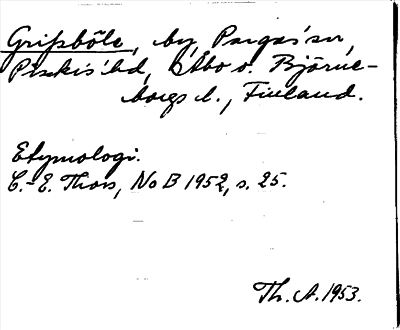 Gripsböle, by, Pargas sn,
Piikkis hd, Åbo o. Björne-
borgs l., Finland.
Etymologi.
C.-E. Thors, NoB 1952, s. 25.
Th. A. 1953.